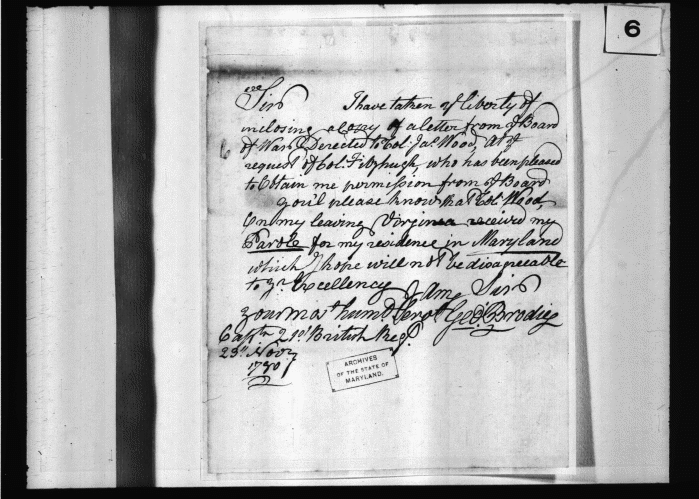 6
Sir I have taken ye liberty of
inclosing a Copy of a letter from ye Board
of War Derected to Col: Jas. Wood, At ye
request of Col: Fitzhugh, who has been pleased
to Obtain me permission from ye Board
you'l please know that Col: Wood,
On my leaving Virginia received my
Parole for my residence in Maryland
which I hope will not be disagreeable
to yr Excellency I am Sir
your most humble Servt Geo: Brodie
Captn 21st British Regt.
23d Novr
1780
ARCHIVES
OF THE STATE OF
MARYLAND.